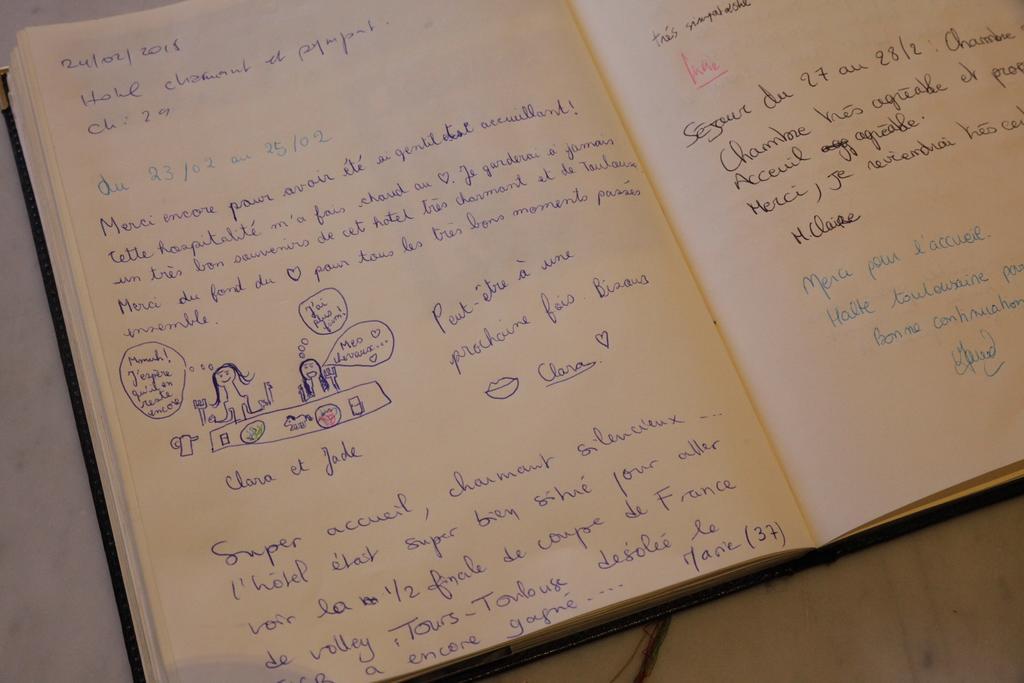 24/02/2018
Hotel charmant et sympat.
Ch: 29
Du 23/02 au 25/02
Merci encore pour avoir été si gentil et accueillant!
Cette hospitalité m'a fais chaud au ♡. Je garderai à jamais
un très bon souvenirs de cet hotel très charmant et de Toulouse
Merci du fond du ♡ pour tous les très bons moments passés
ensemble.
J'ai
plus
faim!
Mes
chevaux...
Mmmh!
J'espère
qu'il en
reste
encore
Clara et Jade
Peut-être à une
prochaine fois. Bisous
Clara ♡
Super accueil, charmant silencieux ...
l'hôtel était super bien situé pour aller
voir la 1/2 finale de coupe de France
de volley : Tours-Toulouse désolée le
a encore gagné.... Marie (37)
très sympatache
Séjour du 27 au 28/2 : Chambre
Chambre très agréable et
Acceuil agréable.
Merci, je reviendrai très
M Claire
Merci pour l'accueil.
Halte toulousaine
Bonne continuation